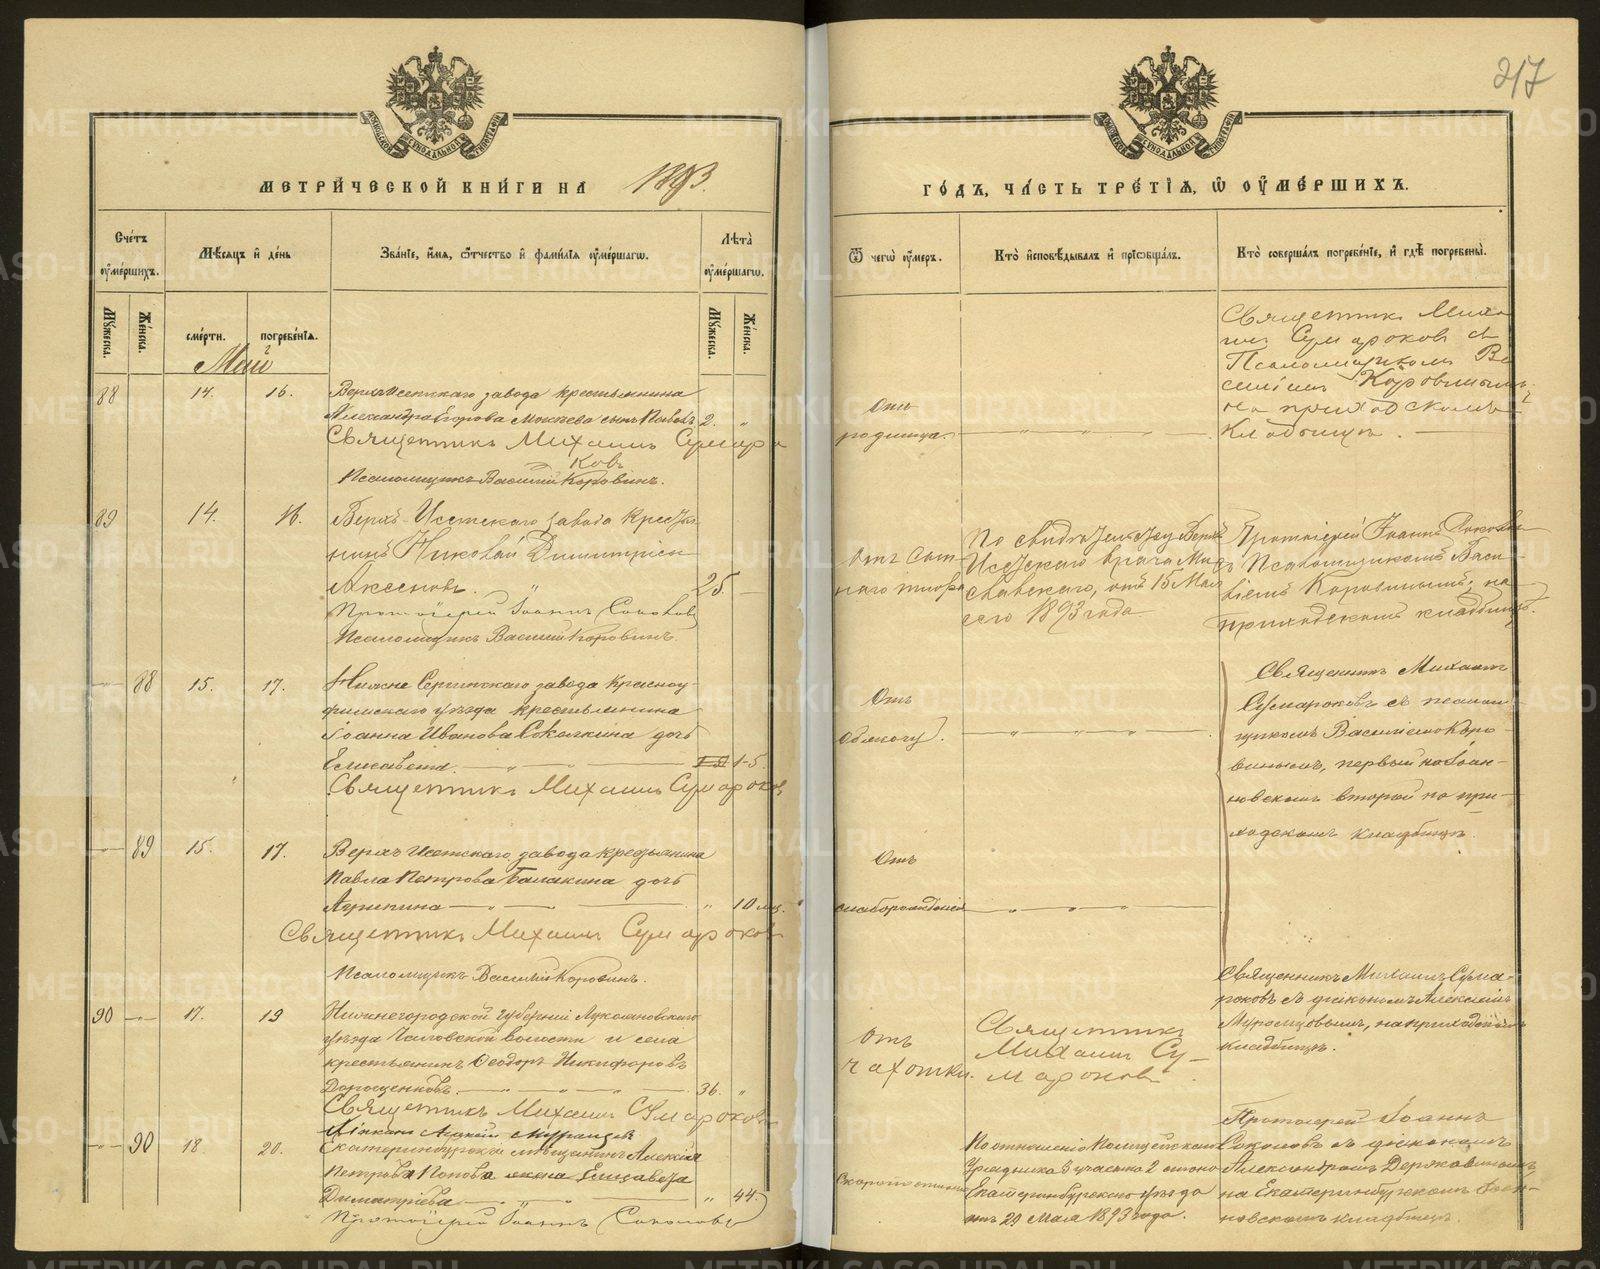 217
МЕТРИЧЕСКОЙ КНИГИ НА 1893.
ГОДЪ, ЧАСТЬ ТРЕТІЯ, Ѡ ОУМЕРШИХЪ.
Счетъ оумершихъ.
Мѣсяцъ и день
Званіе, имя, ѿчество и фамилія оумершагѡ.
Лѣта оумершагѡ.
Ѿ чегѡ оумеръ.
Кто исповѣдывалъ и пріобщалъ.
Кто совершалъ погребеніе, и гдѣ погребены.
Мужеска.
Женска.
смерти.
погребенія.
Мужеска.
Женска.
Май
88 14. 16. Верхъ Исетскаго завода крестьянина
Александра Егорова Мокѣева сынъ Павелъ 2. "
Священникъ Михаилъ Сумаро
ковъ
Псаломщикъ Василій Коровинъ.
Отъ
родимца.
Священникъ Миха
илъ Сумароковъ съ
Псаломщикомъ Ва
силіемъ Коровинымъ,
на приходскомъ
кладбищѣ.
89 14. 16. Верхъ-Исетскаго завода крестья-
нинъ Николай Димитріевъ
Аксеновъ. " 25. —
Протоіерей Іоаннъ Соколовъ
Псаломщикъ Василій Коровинъ.
Отъ сып-
наго тифа
По свидѣтельству Верхъ
Исетскаго врача
отъ 15 Мая
сего 1893 года.
Протоіерей Іоаннъ Соколовъ
съ Псаломщикомъ Васи-
ліемъ Коровинымъ, на
приходскомъ кладбищѣ.
88 15. 17. Нижне Сергинскаго завода Красноу-
фимскаго уѣзда крестьянина
Іоанна Иванова Соколкина дочь
Елисавета. 1-5.
Священникъ Михаилъ Сумароковъ
Отъ
Священникъ Михаилъ
Сумароковъ съ псалом-
щикомъ Василіемъ Коро-
винымъ, первый на Іоан-
новскомъ второй на при-
ходскомъ кладбищѣ.
89 15. 17. Верхъ Исетскаго завода крестьянина
Павла Петрова Балакина дочь
Агрипина " 10 мѣс.
Священникъ Михаилъ Сумароковъ
Псаломщикъ Василій Коровинъ.
Отъ
слаборожденія
90 17. 19 Нижнегородской губерніи Лукояновскаго
уѣзда волости и села
крестьянинъ Ѳеодоръ Никифоровъ
Дорощенковъ. 36. "
Священникъ Михаилъ Сумароковъ
Діаконъ Алексій
Отъ
чахотки.
Священникъ
Михаилъ Су-
мароковъ.
Священникъ Михаилъ Сума-
роковъ съ діакономъ Алексіемъ
на приходскомъ
кладбищѣ.
90 18. 20. Екатеринбургскаго мѣщанина Алексія
Петрова Попова жена Елисавета
Димитріева " 44.
Протоіерей Іоаннъ Соколовъ
Скоропостижно
По отношенію Полицейскаго
Урядника 3 участка 2 стана
Екатеринбургскаго уѣзда
отъ 20 Мая 1893 года.
Протоіерей Іоаннъ
Соколовъ съ діакономъ
Александромъ Державинымъ,
на Екатеринбургскомъ Іоан-
новскомъ кладбищѣ.
METRIKI.GASO-URAL.RU